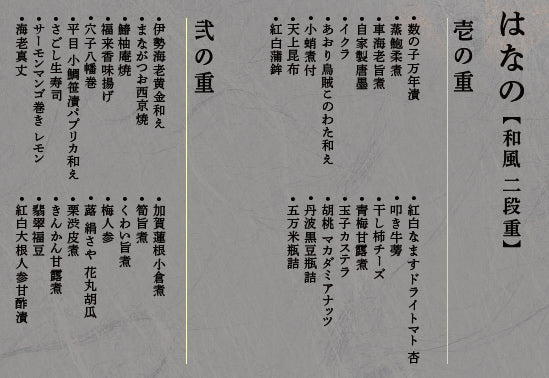 はなの【和風 二段重】
壱の重
・数の子万年漬
・蒸鮑柔煮
・車海老旨煮
・自家製唐墨
・イクラ
・あおり烏賊このわた和え
・小蛸煮付
・天上昆布
・紅白蒲鉾
・紅白なます ドライトマト 杏
・叩き牛蒡
・干し柿チーズ
・青梅甘露煮
・玉子カステラ
・胡桃 マカダミアナッツ
・丹波黒豆瓶詰
・五万米瓶詰
弐の重
・伊勢海老黄金和え
・まながつお西京焼
・鰆柚庵焼
・福来香味揚げ
・穴子八幡巻
・平目 小鯛笹漬パプリカ和え
・さごし生寿司
・サーモンマンゴ巻き レモン
・海老真丈
・加賀蓮根小倉煮
・筍旨煮
・くわい旨煮
・梅人参
・蕗 絹さや 花丸胡瓜
・栗渋皮煮
・きんかん甘露煮
・翡翠福豆
・紅白大根人参甘酢漬